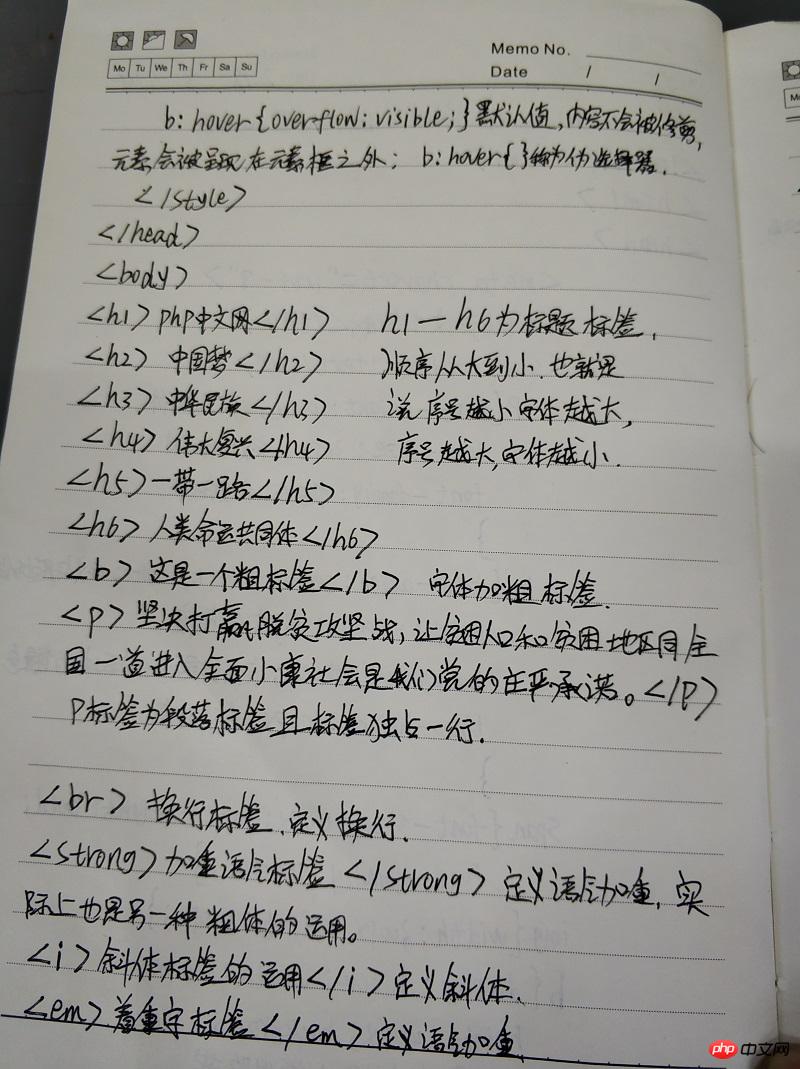 Memo No.
Mo Tu We Th Fr Sa Su
Date / /
b:hover{overflow:visible;}默认值,内容不会被修剪,
元素会被呈现在元素框之外; b:hover{}称为伪选择器.
</style>
</head>
<body>
<h1>php中文网</h1> h1—h6为标题标签,
<h2> 中国梦</h2> 顺序从大到小.也就是
<h3> 中华民族</h3> 说序号越小字体越大,
<h4> 伟大复兴</h4> 序号越大,字体越小.
<h5>一带一路</h5>
<h6>人类命运共同体</h6>
<b> 这是一个粗标签</b> 字体加粗标签.
<p>坚决打赢脱贫攻坚战,让贫困人口和贫困地区同全
国一道进入全面小康社会是我们党的庄严承诺。</p>
P标签为段落标签且标签独占一行.
<br> 换行标签.定义换行.
<strong>加重语气标签</strong> 定义语气加重,实
际上也是另一种粗体的运用。
<i>斜体标签的运用</i>定义斜体.
<em>着重字标签</em>.定义语气加重.
php 中文网